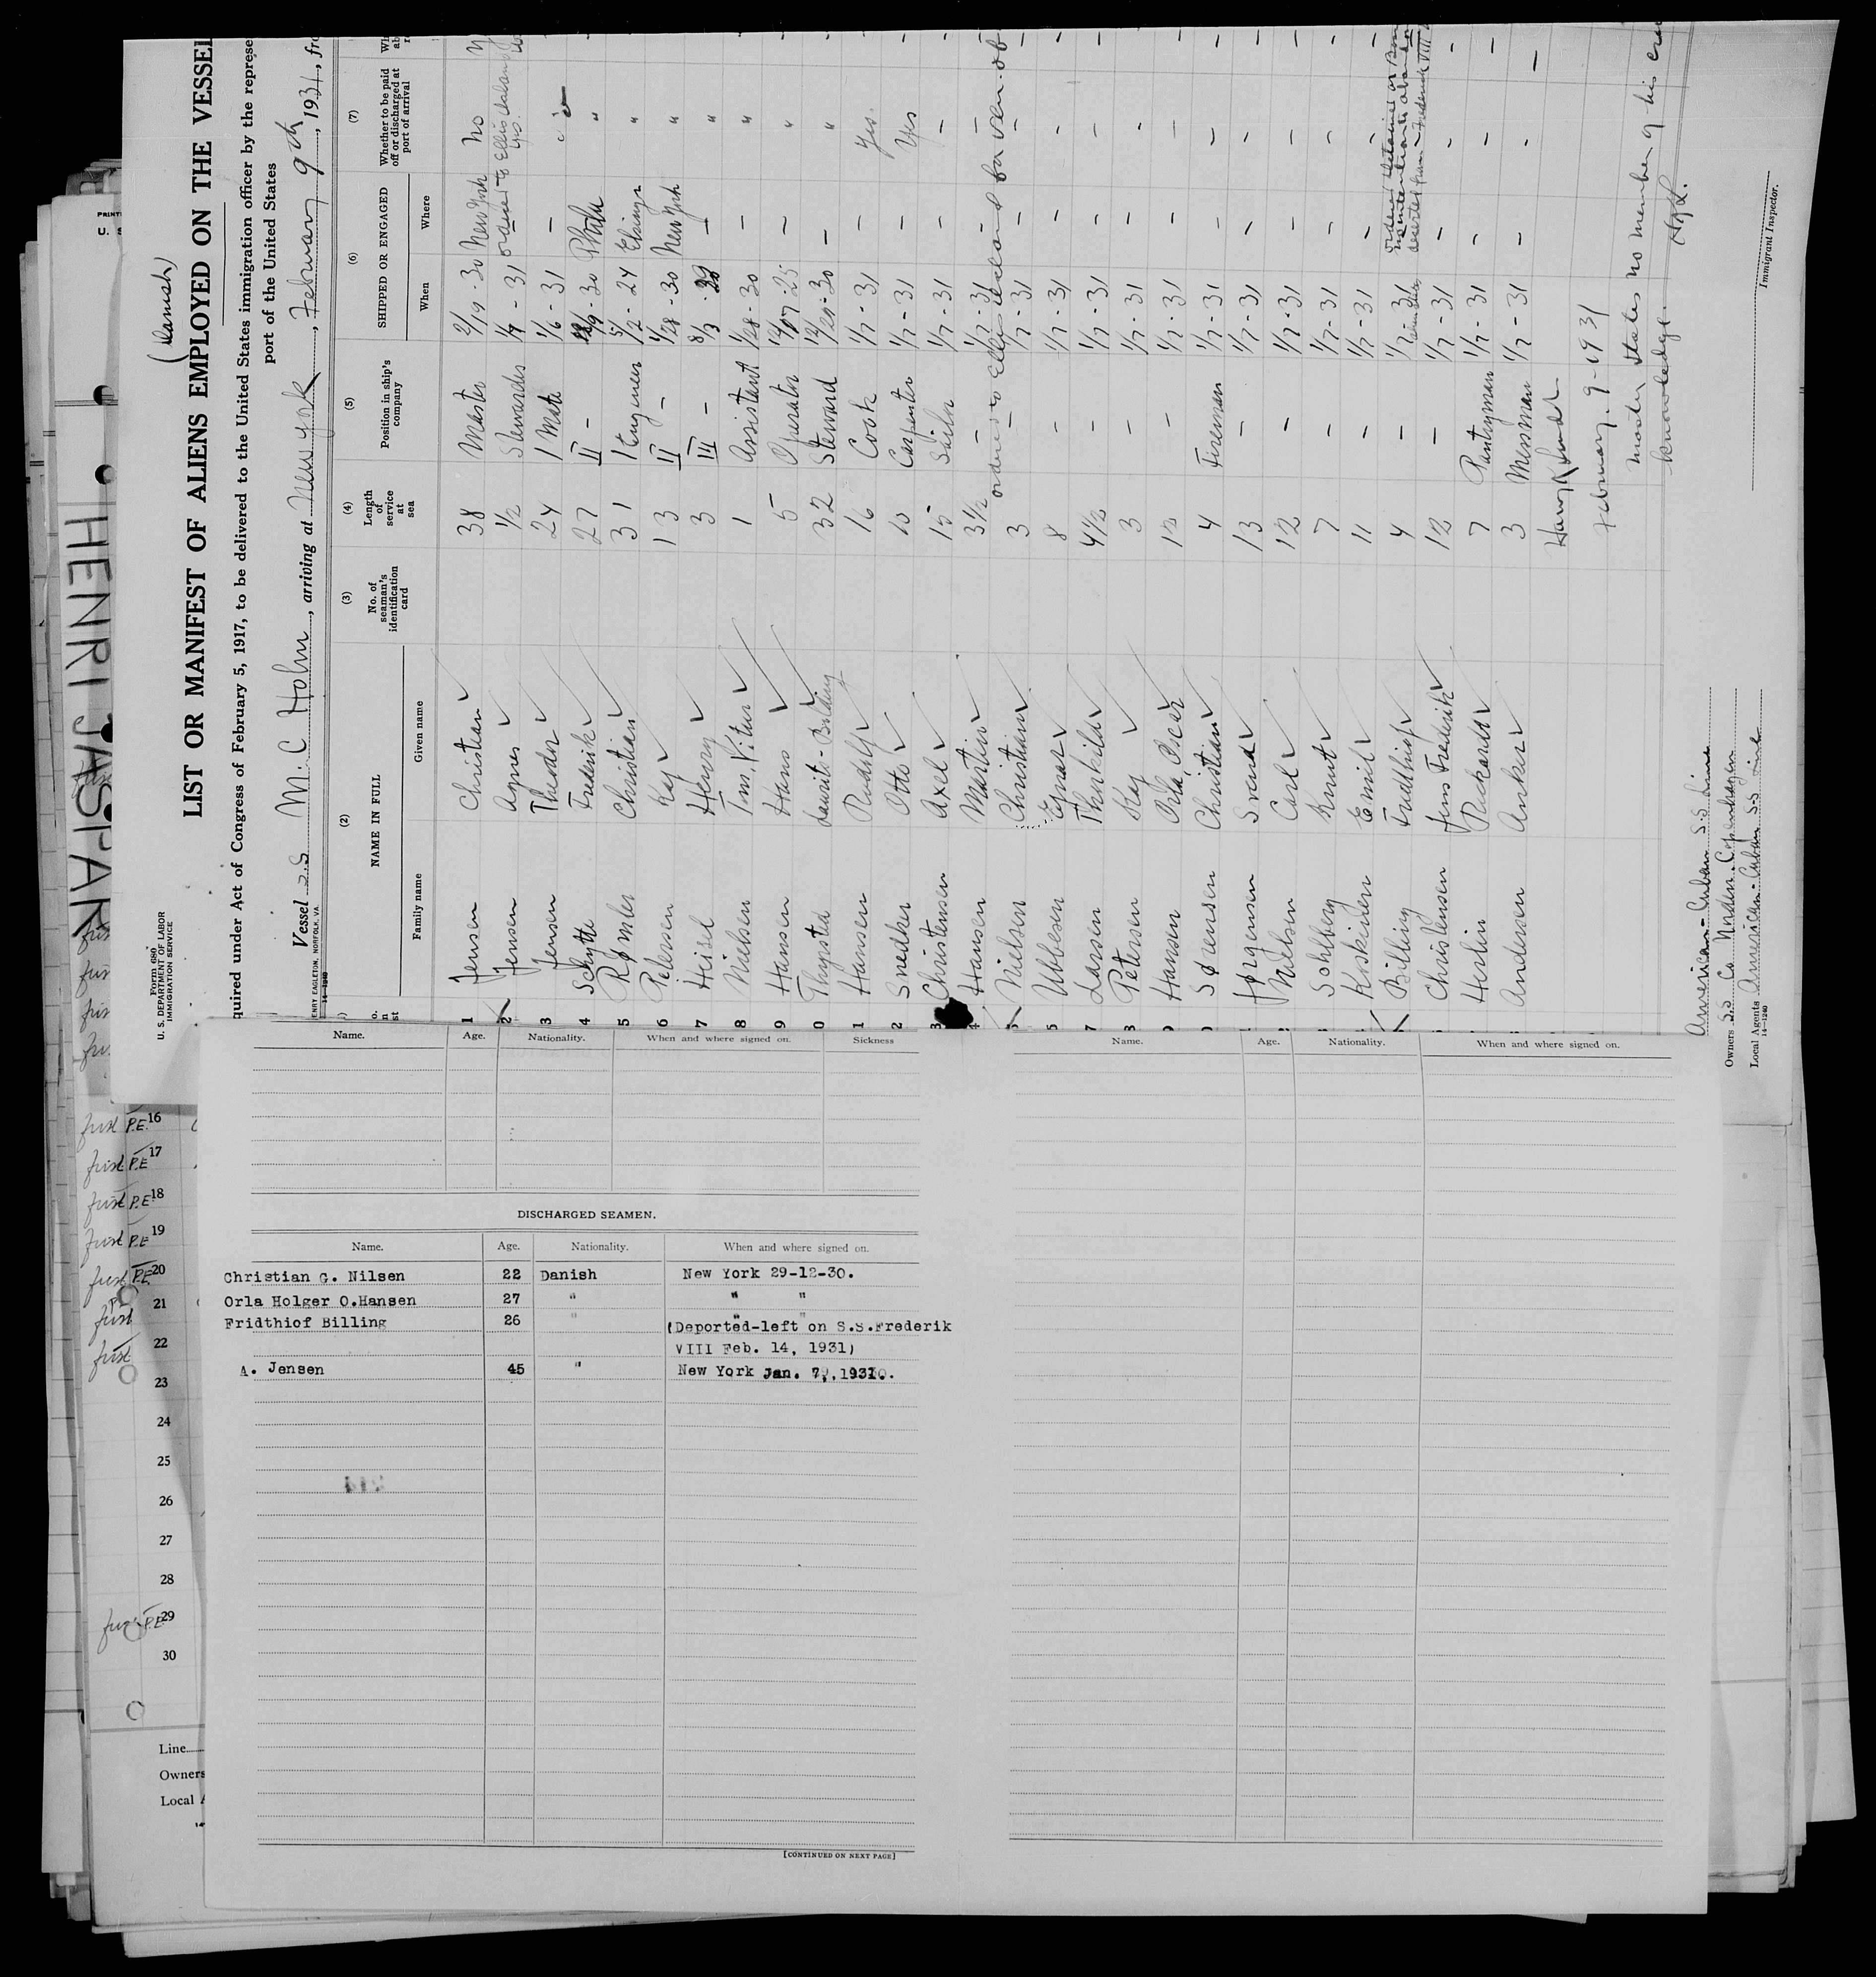 (Danish)
Form 680
U. S. DEPARTMENT OF LABOR
IMMIGRATION SERVICE
LIST OR MANIFEST OF ALIENS EMPLOYED ON THE VESSEL
quired under Act of Congress of February 5, 1917, to be delivered to the United States immigration officer by the represe
port of the United States
Vessel S.S M. C Holm, arriving at New York, February 9th, 1931, fro
HENRY EAGLETON, NORFOLK, VA.
(2) (3) (4) (5) (6) (7)
NAME IN FULL No. of seaman's identification card Length of service at sea Position in ship's company SHIPPED OR ENGAGED Whether to be paid off or discharged at port of arrival
Family name Given name When Where
1 Jensen Christian 38 Master 2/19 - 30 New York No
2 Jensen Agnes 1/2 Stewardes 1/7 - 31 – yes.
ordered to Ellis Island
3 Jensen Theodor 24 1 Mate 1/6 - 31 –
4 Schytte Frederik 27 II – Phila "
5 Rømler Christian 31 1 Engineer 5/2 - 24 "
6 Petersen Kay 13 II – 1/28 - 30 New York "
7 Heisel Henry 3 III – – "
8 Nielsen Jens Vitus 1 Assistent 1/28 - 30 – "
9 Hansen Hans 5 Operator – "
0 Thygsted Laurits 32 Steward 12/29 - 30 – "
1 Hansen Rudolf 16 Cook 1/7 - 31 – Yes.
2 Snedker Otto 10 Carpenter 1/7 - 31 – Yes
3 Christensen Axel 15 Sailor 1/7 - 31 – –
4 Hansen Martin 3½ – 1/7 - 31 – –
ordered to Ellis Island for
Nielsen Christian 3 – 1/7 - 31 – –
Ubbesen Ejnar 8 – 1/7 - 31 – –
7 Larsen Thorkild 4½ – 1/7 - 31 – –
8 Petersen Kay 3 – 1/7 - 31 – –
Hansen Orla Oscar 12 – 1/7 - 31 – –
Sørensen Christian 4 Fireman 1/7 - 31 – –
Jørgensen Svend 13 – 1/7 - 31 – –
Nielsen Carl 12 – 1/7 - 31 – –
Sohlberg Knut 7 – 1/7 - 31 – –
Koskinen Emil 11 – 1/7 - 31 – –
Billing Fridthiof 4 – 1/7 - 31
Christensen Jens Frederik 12 – 1/7 - 31 – –
Herlin Rickard 7 Pantryman 1/7 - 31 – –
Andersen Anker 3 Messman 1/7 - 31 – –
February, 9 - 1931
Master states no member of his crew
knowledge.
Immigrant Inspector.
American-Cuban S.S Line
Owners S.S Co Norden Copenhagen
Local Agents American-Cuban S.S Line
14—1240
HENRI JASPAR
Name. Age. Nationality. When and where signed on. Sickness
Name. Age. Nationality. When and where signed on.
DISCHARGED SEAMEN.
Name. Age. Nationality. When and where signed on.
Christian G. Nilsen 22 Danish New York 29-12-30.
Orla Holger O.Hansen 27 " " "
Fridthiof Billing 26 " " "
(Deported-left on S.S.Frederik
VIII Feb. 14, 1931)
A. Jensen 45 " New York Jan. 7, 1931.
[CONTINUED ON NEXT PAGE]
first P.E. 16
first P.E 17
first P.E 18
first P.E 19
first P.E 20
first 21
first 22
23
24
25
26
27
28
P.E 29
30
Line
Owners
Local A